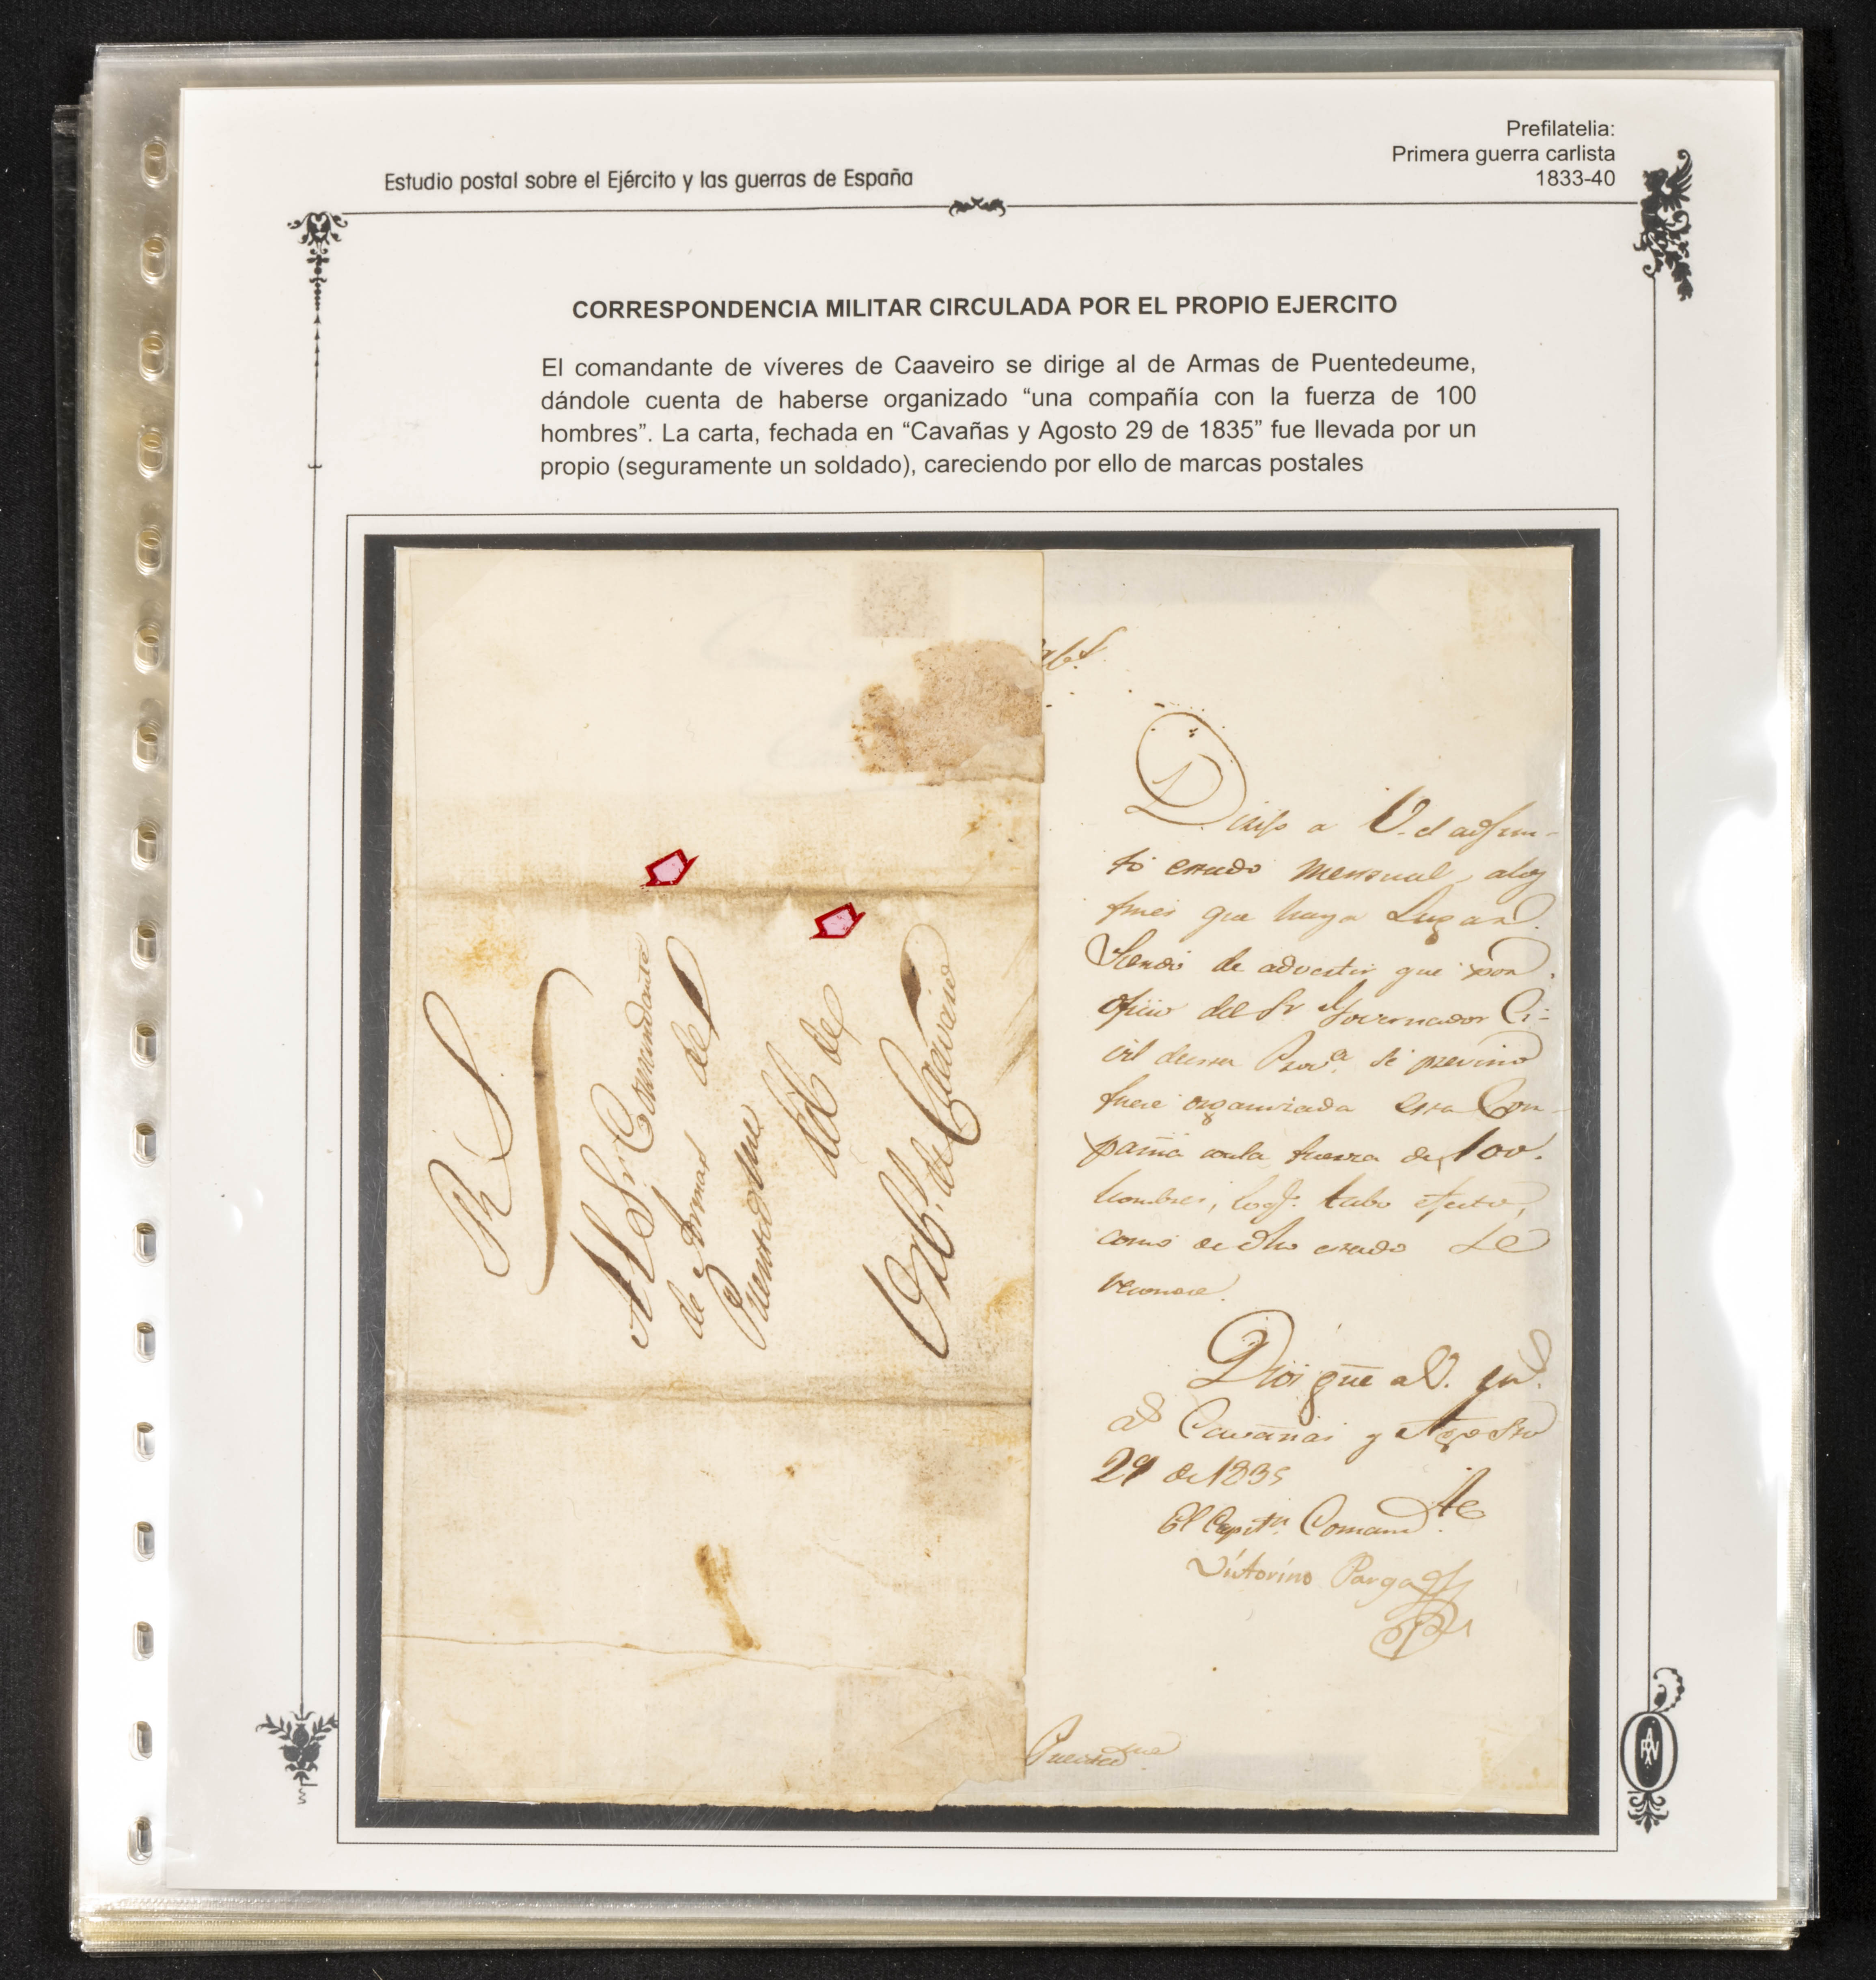 Prefilatelia:
Primera guerra carlista
1833-40
Estudio postal sobre el Ejército y las guerras de España
CORRESPONDENCIA MILITAR CIRCULADA POR EL PROPIO EJERCITO
El comandante de víveres de Caaveiro se dirige al de Armas de Puentedeume,
dándole cuenta de haberse organizado “una compañía con la fuerza de 100
hombres”. La carta, fechada en “Cavañas y Agosto 29 de 1835” fue llevada por un
propio (seguramente un soldado), careciendo por ello de marcas postales
R S
Al Sr Comandante
de Armas de
Puentedeume
del de
de Caaveiro
Dirijo a V. el adjun-
to estado mensual, a los
fines que haya Lugar.
Siendo de advertir que por
oficio del Sr Governador Ci-
vil de esta Prov.a se previno
fuese organizada esta Com-
pañia con la fuerza de 100.
hombres, lo q.e tubo efecto,
como de dho estado se
reconoce.
Dios gue a V. m.s
a.s Cavañas y Agosto
29 de 1835
El Capit.n Comand.te
Victorino Parga
Puented.ume